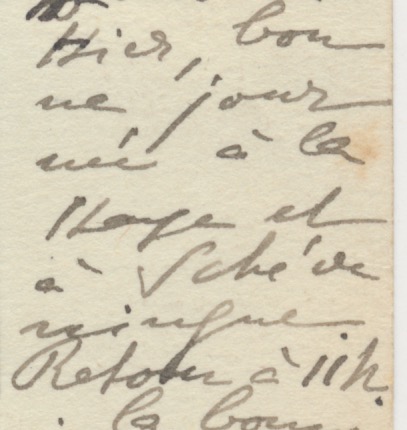 Hier, bon
ne jour
née à la
Haye et
à Sché've
ningue
Retour à 11h.
la bonne